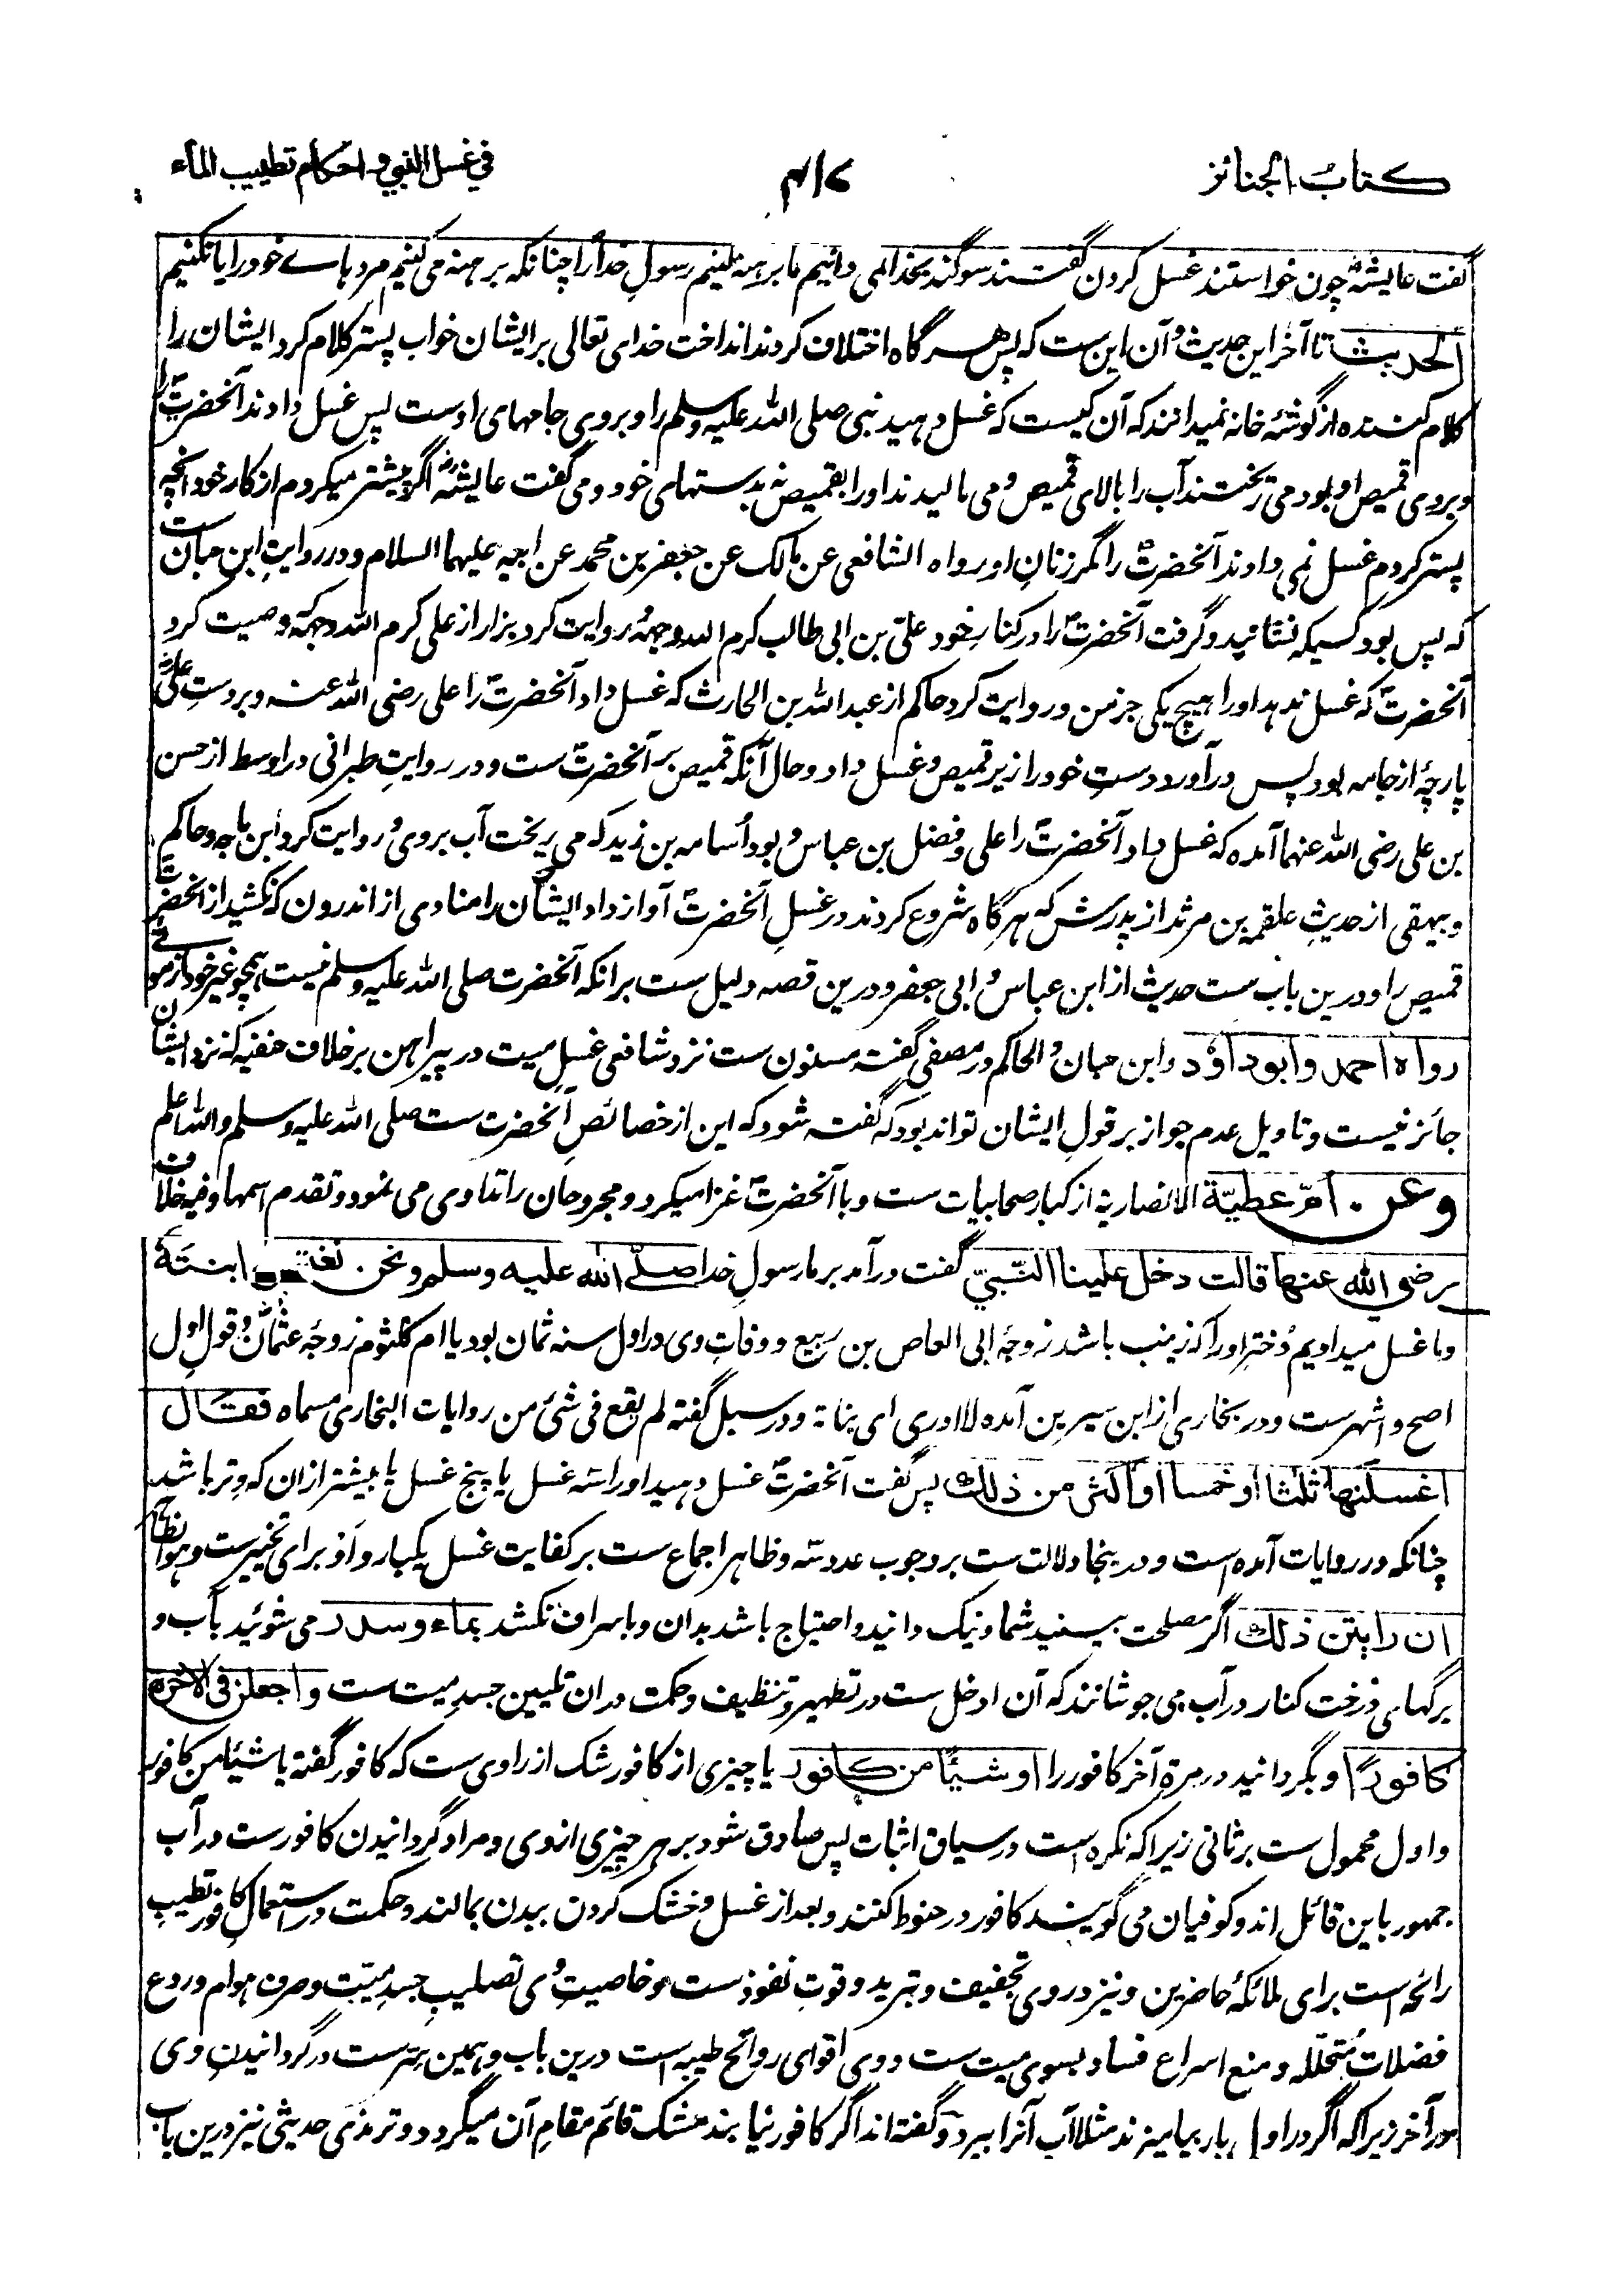 كتاب الجنائز
۴۱۷
في غسل النبي و احكام تطييب الماء
گفت عايشهؓ چون خواستند غسل كردن گفتند سوگند بخدا نمی دانيم ما برهنه كنيم رسولِ خدا را چنانكه برهنه می كنيم مردہاے خود را يا نكنيم
الحديث تا آخر اين حديث و آن اين ست كه پس هر گاه اختلاف كردند انداخت خدای تعالى بر ايشان خواب پستر كلام كرد ايشان را
كلام كننده از گوشهٔ خانه نميدانند كه آن كيست كه غسل دہيد نبی صلى الله عليه وسلم را و بروی جامهای اوست پس غسل دادند آنحضرتؐ را
و بروی قميص او بود می ريختند آب را بالای قميص و می ماليدند او را بقميص نه بدستهای خود و می گفت عايشهؓ اگر پيشتر ميكردم از كار خود آنچه
پستر كردم غسل نمی دادند آنحضرتؐ را مگر زنانِ او رواه الشافعی عن مالك عن جعفر بن محمد عن ابيه عليهما السلام و در روايتِ ابن حبان ست
كه پس بود كسيكه نشانيد و گرفت آنحضرتؐ را در كنارِ خود علی بن ابی طالب كرم الله وجهه و روايت كرد بزار از علی كرم الله وجهه وصيت كرد
آنحضرتؐ كه غسل ندہد او را هيچ يكی جز من و روايت كرد حاكم از عبد الله بن الحارث كه غسل داد آنحضرتؐ را علی رضی الله عنه و بر دستِ علیؓ
پارچهٔ از جامه بود پس در آورد دستِ خود را زير قميص و غسل داد و حال آنكه قميص بر آنحضرتؐ ست و در روايتِ طبرانی در اوسط از حسن
بن علی رضی الله عنهما آمده كه غسل داد آنحضرتؐ را علی و فضل بن عباس و بود اُسامه بن زيد كه می ريخت آب بروی و روايت كرد ابن ماجه و حاكم
و بيهقی از حديثِ علقمه بن مرثد از پدرش كه هر گاه شروع كردند در غسلِ آنحضرتؐ آواز داد ايشان را منادی از اندرون كه نكشيد از آنحضرتؐ
قميص را و درين باب ست حديث از ابن عباس و ابی جعفر و درين قصه دليل ست بر آنكه آنحضرت صلى الله عليه وسلم نيست همچو غير خود از موتے
رواه احمد وابوداؤد و ابن حبان و الحاكم در مصفى گفته مسنون ست نزد شافعی غسلِ ميت در پيراهن بر خلاف حنفيه كه نزد ايشان
جائز نيست و تاويل عدم جواز بر قولِ ايشان تواند بود كه گفته شود كه اين از خصائصِ آنحضرت ست صلى الله عليه وسلم و الله اعلم
وعن ام عطيّة الانصاريه از كبار صحابيات ست و با آنحضرتؐ غزا ميكرد و مجروحان را تداوی می نمود و تقدم اسمها و فيه خلاف
رضي الله عنها قالت دخل علينا النّبيّ گفت در آمد بر ما رسولِ خدا صلّے الله عليه وسلم ونحن نغسل ابنته
و ما غسل ميداديم دُخترِ او را كه زينب باشد زوجهٔ ابی العاص بن ربيع و وفاتِ وی در اول سنه ثمان بود يا ام كلثوم زوجهٔ عثمانؓ و قولِ اول
اصح و اشهر ست و در بخاری از ابن سيرين آمده لا ادری ای بناته و در سبل گفته لم يقع فی شئ من روايات البخاری مسماة فقال
اغسلنها ثلثا او خمسا او اكثر من ذلك پس گفت آنحضرتؐ غسل دہيد او را سه غسل يا پنج غسل يا بيشتر ازان كه وتر باشد
چنانكه در روايات آمده است و درينجا دلالت ست بر وجوب عدد سه و ظاهر اجماع ست بر كفايت غسل يكبار و اَو براى تخيير ست و هو الظاهر
ان رايتن ذلك اگر مصلحت بينيد شما و نيك دانيد و احتياج باشد بدان و باسراف نكشد بماء وسدر می شوئيد بآب و
برگهای درخت كنار در آب می جوشانند كه آن ادخل ست در تطهير و تنظيف و حكمت در ان تليين جسدِ ميت ست واجعلن فی الآخرة
كافورًا و بگردانيد در مرةِ آخر كافور را او شيئًا من كافور يا چيزی از كافور شك از راوی ست كه كافور گفته يا شيئا من كافور
و اول محمول ست بر ثانی زيرا كه نكره است در سياق اثبات پس صادق شود بر هر چيزی ازوی و مراد گردانيدن كافور ست در آب
جمهور باين قائل اند و كوفيان می گويند كافور در حنوط كنند و بعد از غسل و خشك كردن ببدن بمالند و حكمت در استعمالِ كافور تطييبِ
رائحه است براى ملائكهٔ حاضرين و نيز در وی تجفيف و تبريد و قوتِ نفوذ ست و خاصيتِ وی تصليبِ جسدِ ميّت و صرف هوام و ردع
فضلاتِ متحلله و منع اسراعِ فساد بسوی ميت ست و وی اقوای روائحِ طيبه است درين باب و همين سِرّ ست در گردانيدنِ وی
در آخر زيرا كه اگر در اول بار بياميزند مثلا آب آنرا ببرد و گفته اند اگر كافور نيابند مشك قائم مقامِ آن ميگردد و ترمذی حديثی نيز درين باب